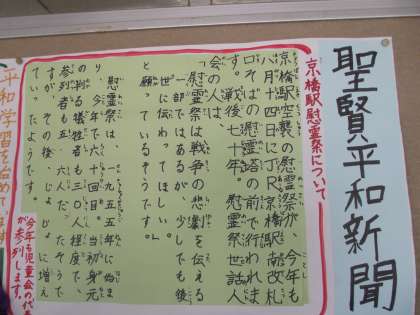 聖賢平和新聞
京橋駅慰霊祭について
京橋駅空襲の慰霊祭が、今年も
八月十四日にJR京橋駅南改札
口そばの慰霊塔の前で行われま
す。戦後七十年。慰霊祭世話人
会の人は、
「慰霊祭は戦争の悲劇を伝える
一部ではあるが、少しでも後
世に伝わってほしい。」
と願っているそうです。
慰霊祭は、一九五五年に始ま
り、今年で六十回目。当初身元
の判る犠牲者も三〇人程度で、
参列者も五、六人だったそうで
すが、その後、じょじょに増え
ていった。
今年も児童会の代表
が参列します。
平和学習を始めています